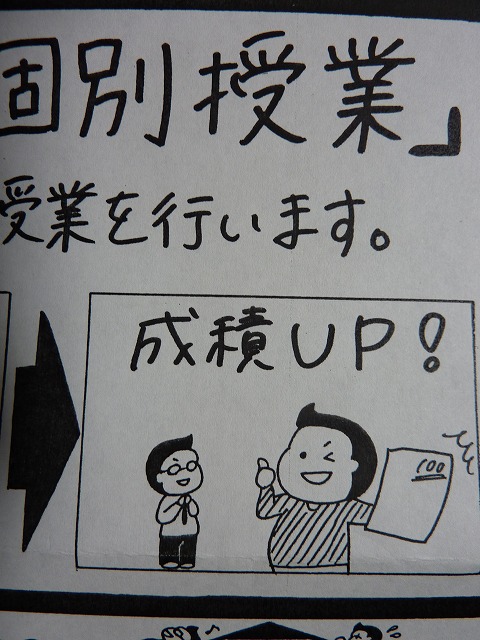 個別授業」
受業を行います。
成積UP!
100